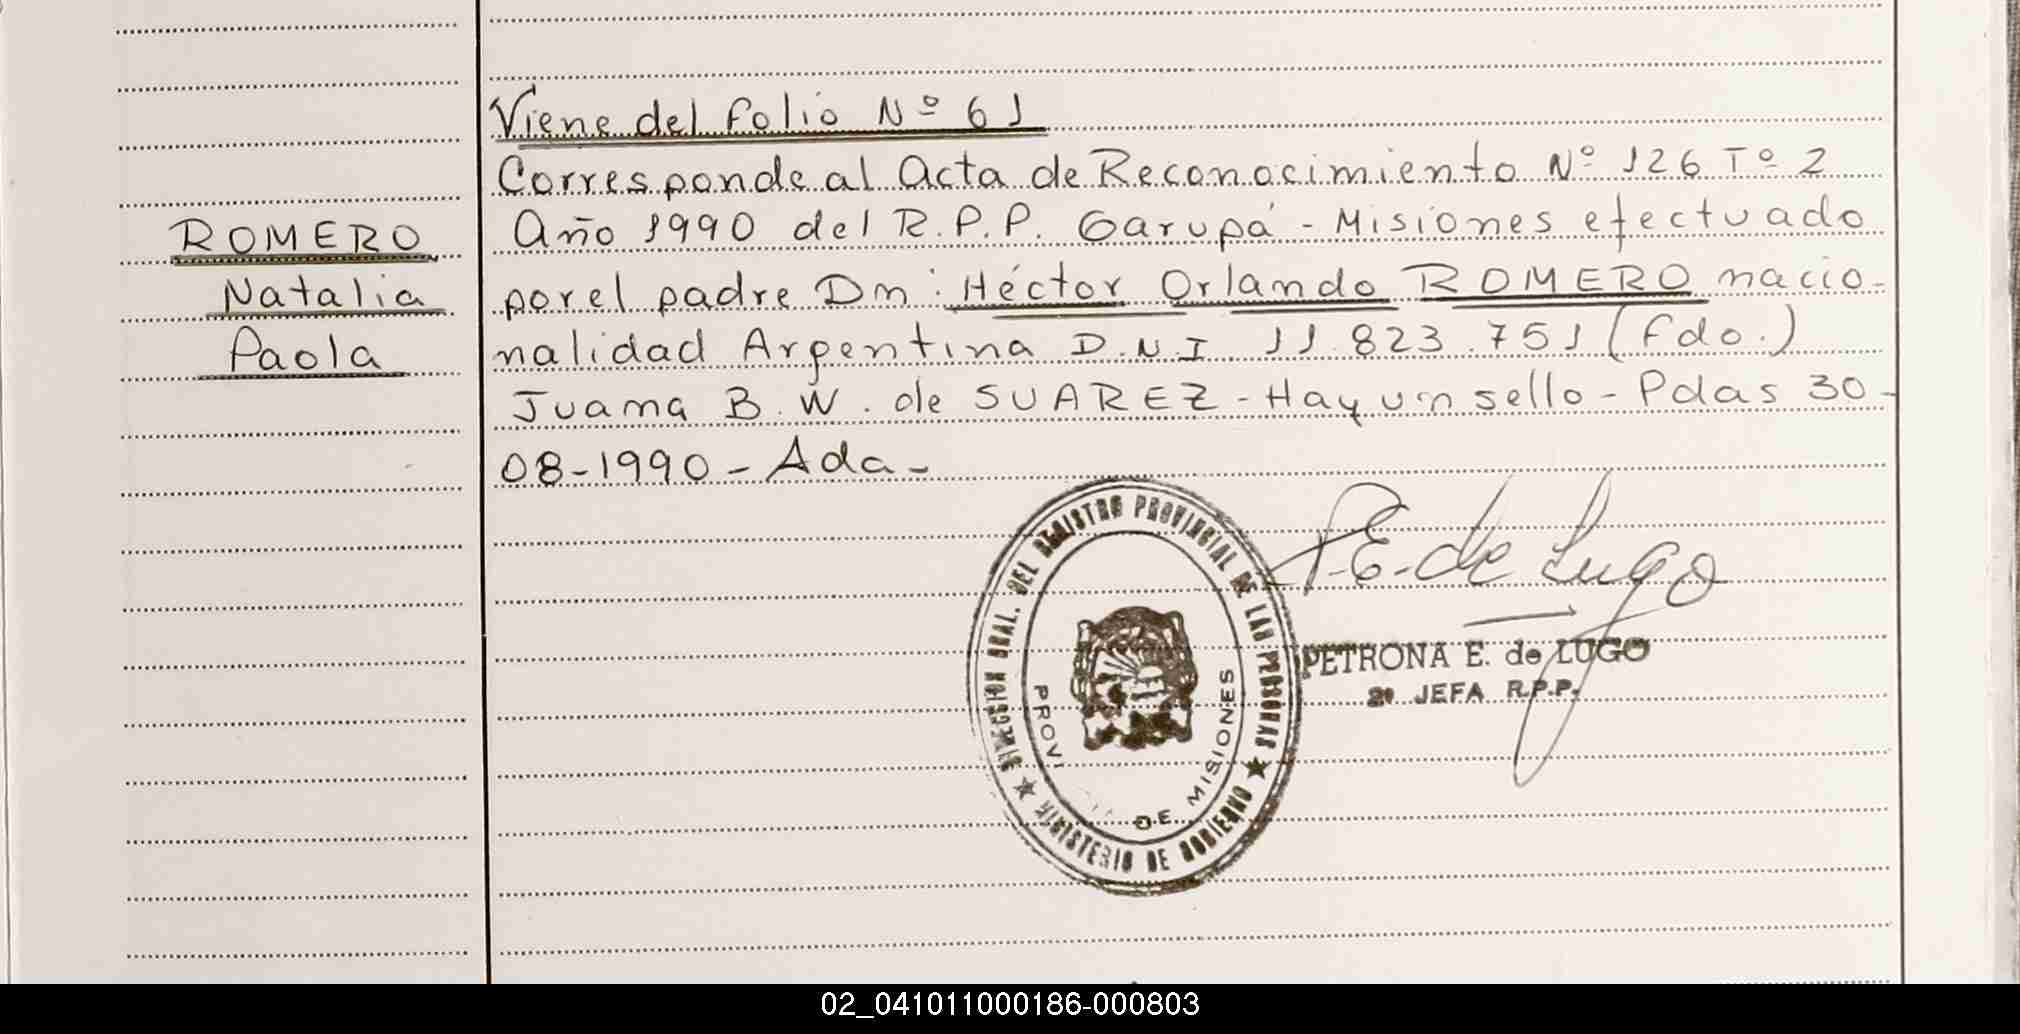 Viene del folio Nº 61
Corresponde al Acta de Reconocimiento Nº 126 Tº 2
ROMERO
Natalia
Paola
Año 1990 del R.P.P. Garupá - Misiones efectuado
por el padre Dn: Héctor Orlando ROMERO nacio-
nalidad Argentina D.N.I 11.823.751 (fdo.)
Juana B. W. de SUAREZ - Hay un sello - Pdas 30-
08-1990 - Ada -
P.E. de Lugo
PETRONA E. de LUGO
2ª JEFA R.P.P.
DIRECCION GRAL. DEL REGISTRO PROVINCIAL DE LAS PERSONAS
★ MINISTERIO DE GOBIERNO ★
PROVI
DE MISIONES
02_041011000186-000803